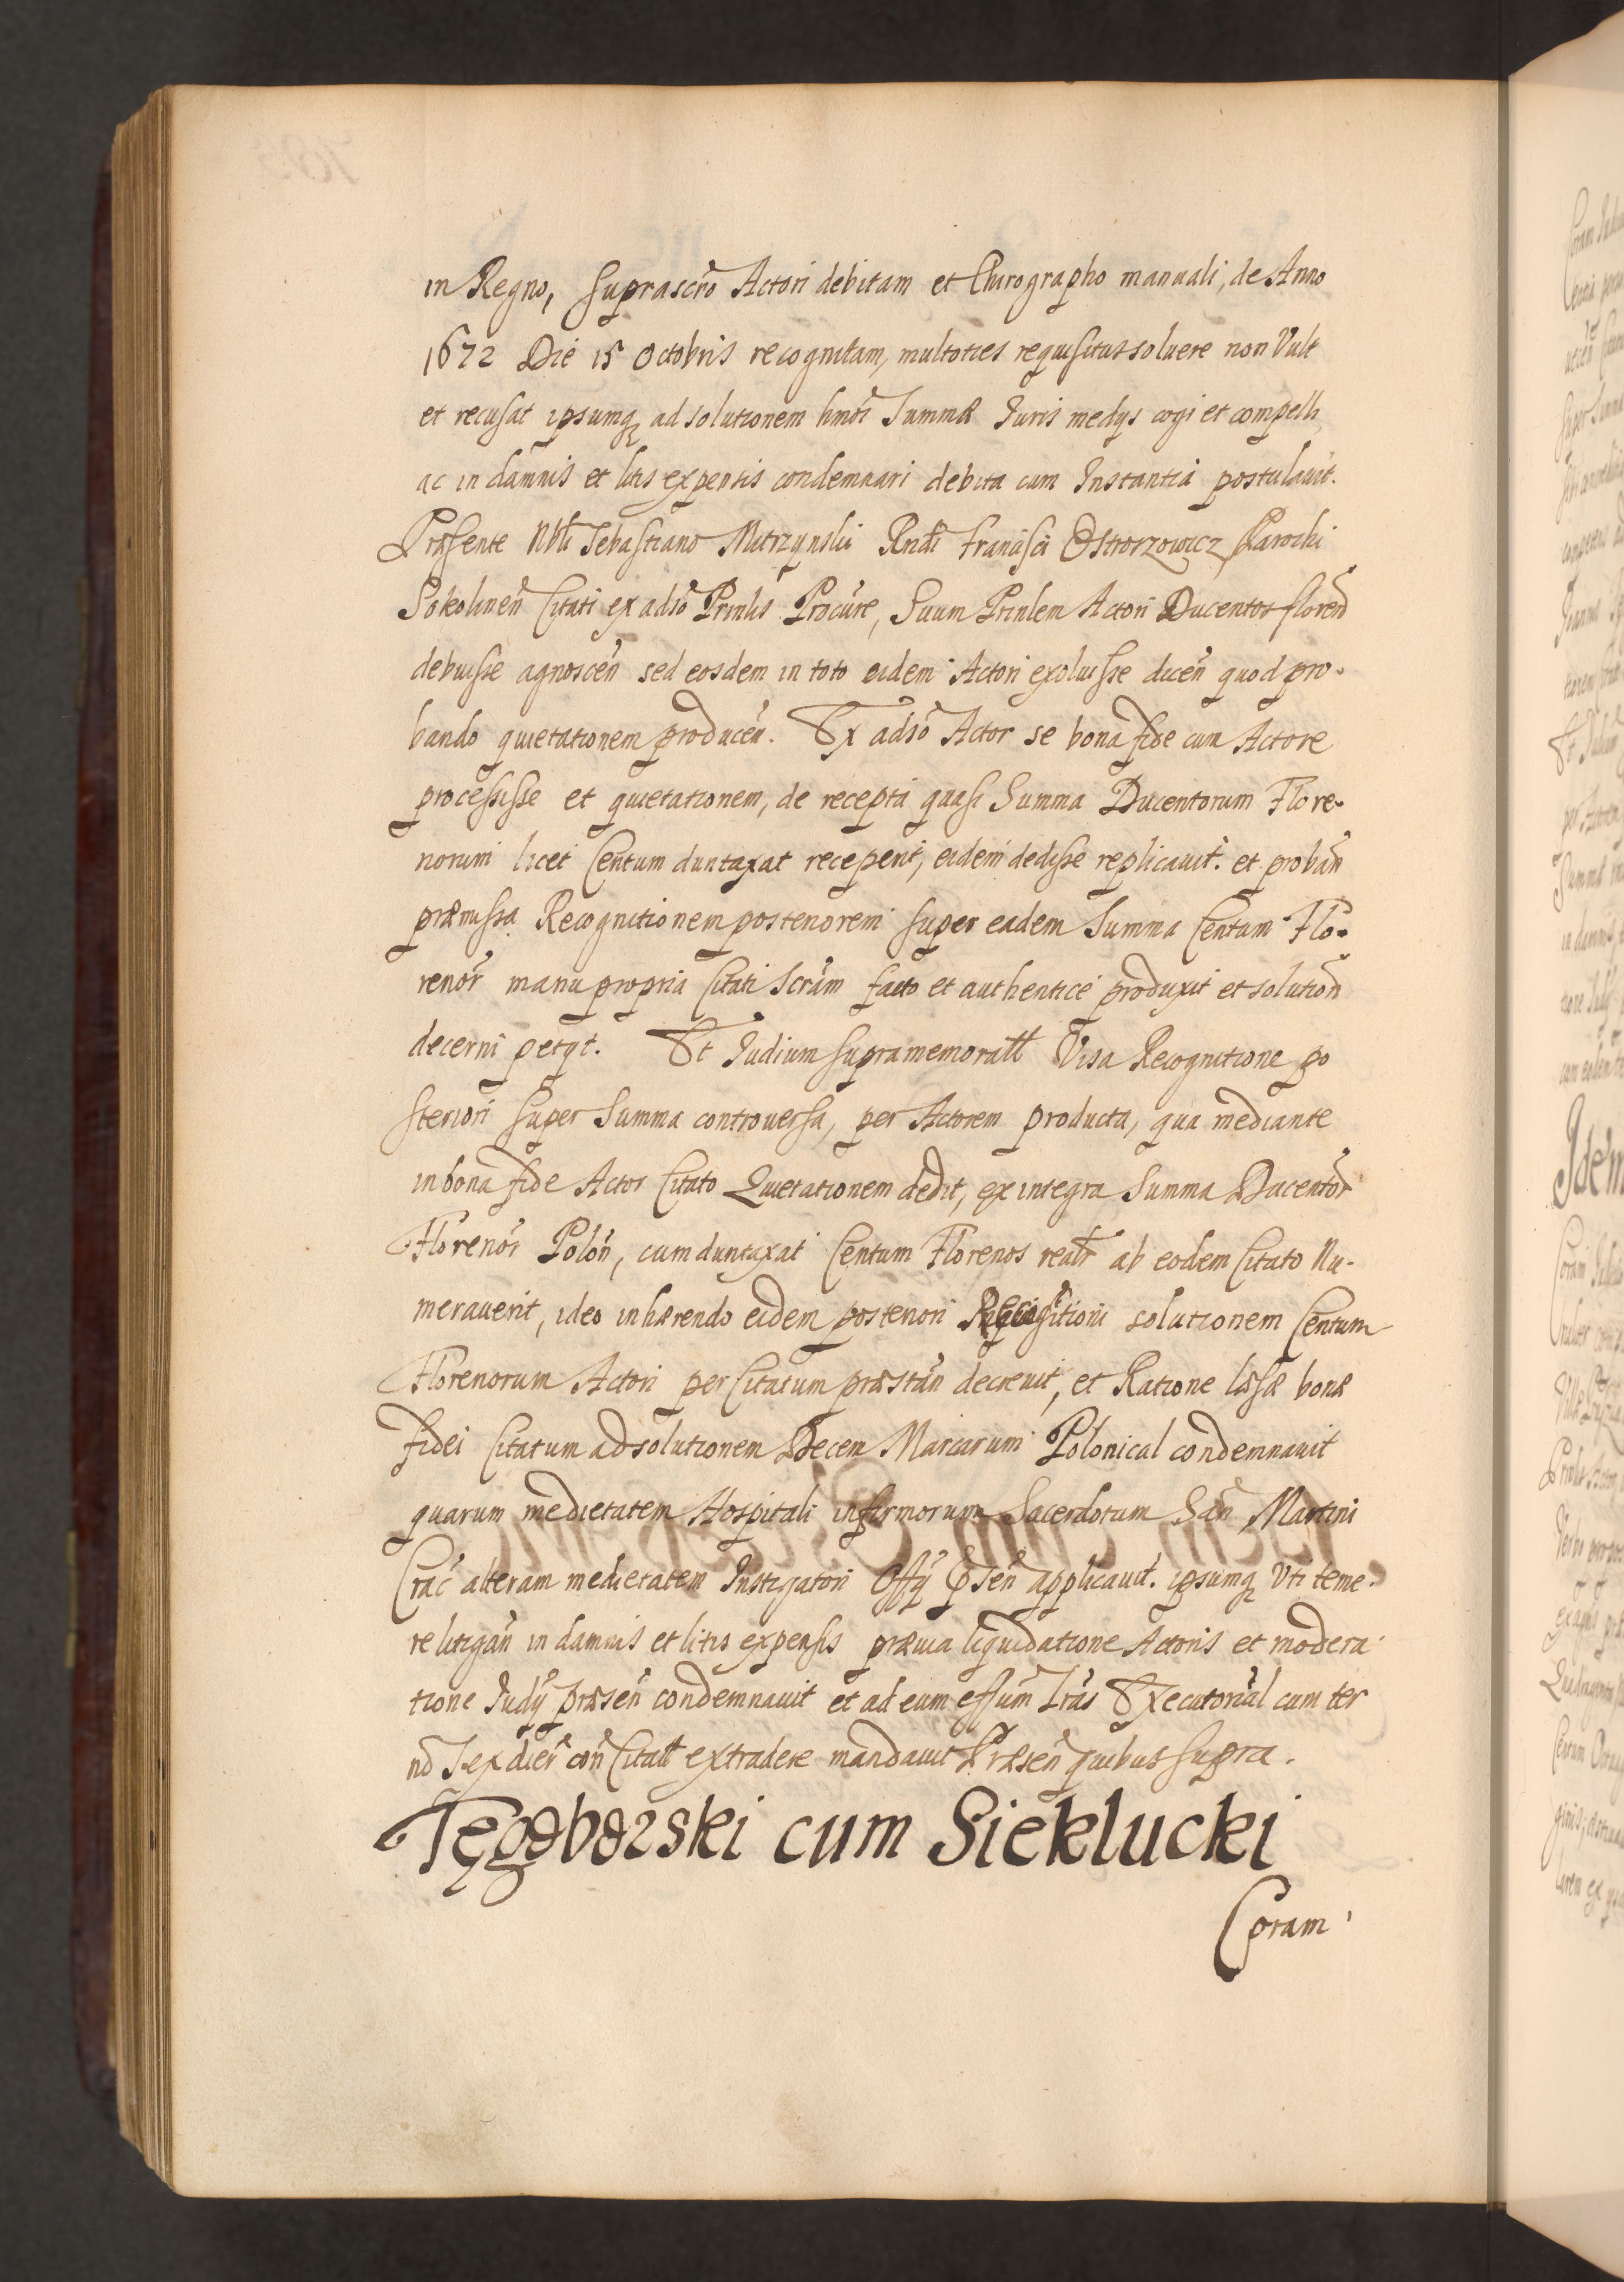 in Regno, suprascrō Actori debitam et Chirographo manuali, de Anno
1672 Die 15 Octobris recognitam, multoties requisitus soluere non Vult
et recusat ipsumq ad solutionem hmōi Summæ Iuris medys cogi et compelli
ac in damnis et litis expensis condemnari debita cum Instantia postulauit.
Præsente Nbli Sebastiano Rndi Francisci Ostrorzowicz Parochi
Sokolinen̄ Citati ex adso Prinlis Procure, Suum Prinlem Actori Ducentos floren̄
debuisse agnoscen̄ sed eosdem in toto eidem Actori exoluisse dicen̄ quod pro-
bando quietationem producen̄. Ex adso Actor se bona fide cum Actore
processisse et quietationem, de recepta quasi Summa Ducentorum Flore-
norum licet Centum duntaxat receperit, eidem dedisse replicauit. et proban̄
præmissa Recognitionem posteriorem super eadem Summa Centum Flo-
renor̄ manu propria Citati Scr̄am facto et authentice produxit et solution̄
decerni petyt. Et Iudium supramemoratt Visa Recognitione po
steriori super Summa controuersa, per Actorem producta, qua mediante
in bona fide Actor Citato Quietationem dedit, ex integra Summa Ducentor̄
Florenor̄ Polon̄, cum duntaxat Centum Florenos realr ab eodem Citato Nu-
merauerit, ideo inhærendo eidem posteriori Recognitioni solutionem Centum
Florenorum Actori per Citatum præstan̄ decreuit, et Ratione læsæ bonæ
fidei Citatum ad solutionem Decem Marcarum Polonical condemnauit
quarum medietatem Hospitali infirmorum Sacerdotum San̄ Martini
Crac̄ alteram medietatem Instigatori Offÿ Psen̄ applicauit. ipsumq Uti teme-
re litigan̄ in damnis et litis expensis præuia liquidatione Actoris et modera-
tione Iudÿ præsen̄ condemnauit et ad eum effum Lrās Executorial cum ter
no Sex dier̄ con̄ Citatt extradere mandauit Præsen̄ quibus supra.
Tęgoborski cum Sieklucki
Coram